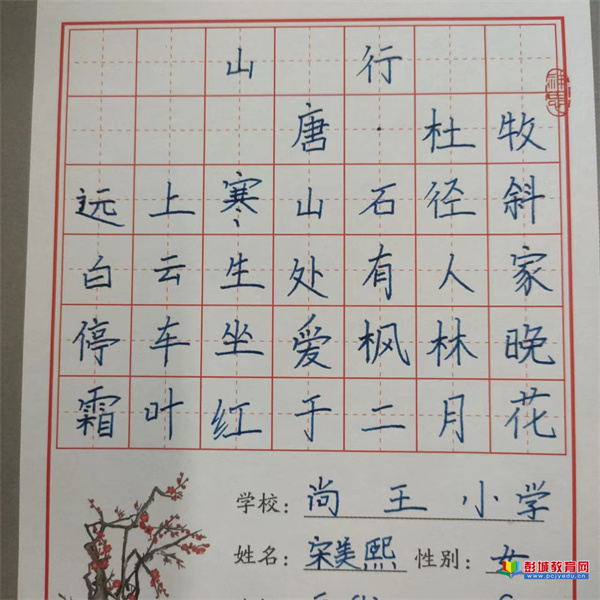 山行
唐·杜牧
远上寒山石径斜
白云生处有人家
停车坐爱枫林晚
霜叶红于二月花
学校：尚王小学
姓名：宋美熙 性别：女
彭城教育网
www.pcjyedu.cn